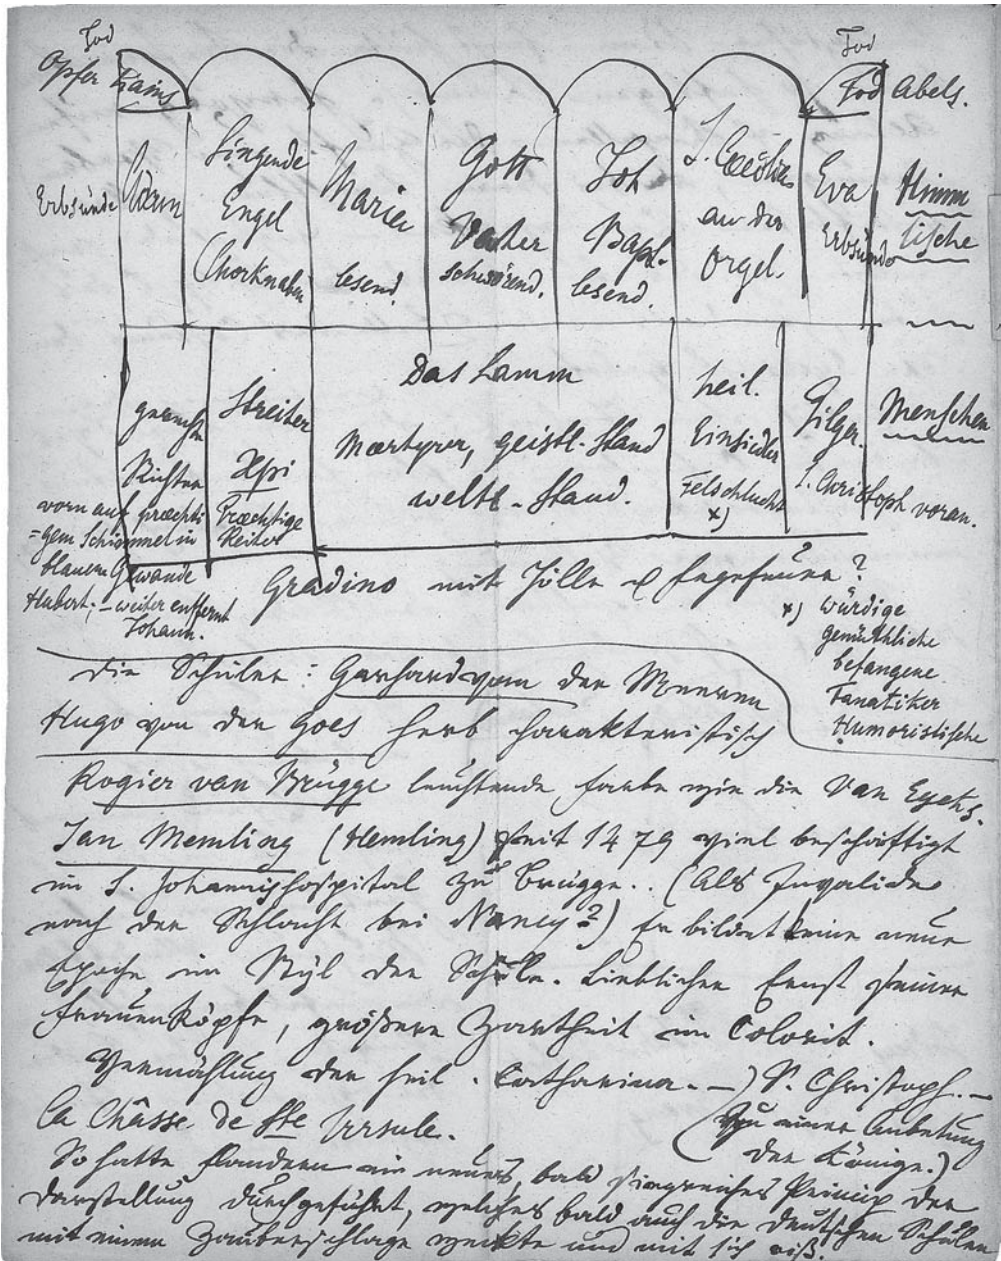 Tod
Opfer Kains
Tod
Tod Abels.
Erbsünde
Adam
Singende
Engel
Chorknaben
Maria
lesend.
Gott
Vater
schwörend.
Joh
Bapt.
lesend.
S. Cäcilia
an der
Orgel.
Eva
Erbsünde
Himm
lische
gerechte
Richter
vorn auf præchti
=gem Schimmel in
blauem Gewande
Hubert; – weiter entfernt
Johann.
Streiter
Xpi
Præchtige
Reiter
Das Lamm
Mærtyrer, geistl. Stand
weltl. Stand.
heil.
Einsiedler
Felsschlucht
x)
Pilger.
S. Christoph voran.
Menschen
Gradino mit Hölle u Fegefeuer?
x) würdige
gemüthliche
befangene
Fanatiker
Humoristische
die Schüler: Gerhard von der Meeren
Hugo von der Goes herb charakteristisch
Rogier van Brügge leuchtende Farbe wie die Van Eycks.
Jan Memling (Hemling) seit 1479 viel beschäftigt
im S. Johannishospital zu Brügge.. (Als Invalide
nach der Schlacht bei Nancy?) Er bildet eine neue
Epoche im Styl der Schule. Lieblicher Ernst seiner
Frauenköpfe, größere Zartheit im Colorit.
Vermählung der heil. Catharina. –) S. Christoph. –
La Châsse de Ste Ursule.
(Zu einer Anbetung
der Könige.)
So hatte Flandern ein neues, bald siegreiches Prinzip der
Darstellung durchgeführt, welches bald auch die deutschen Schulen
mit einem Zauberschlage weckte und mit sich riß.